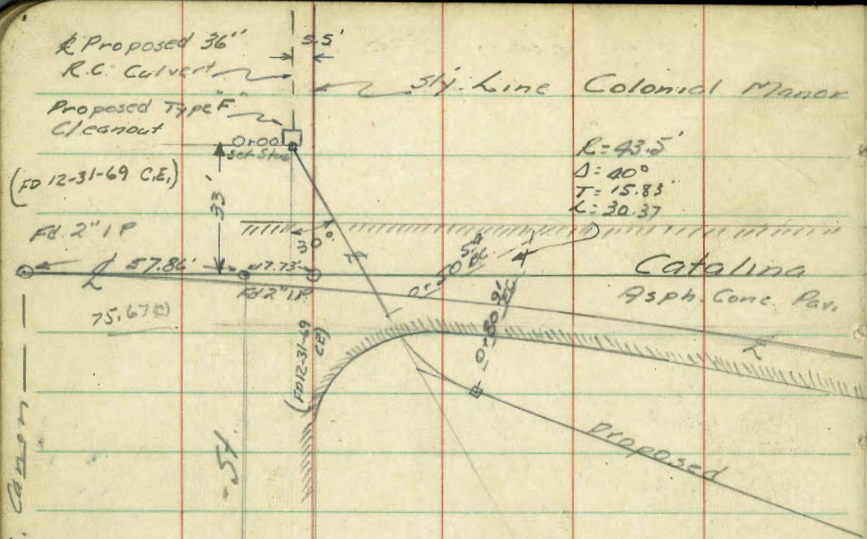 ℄ Proposed 36"
R.C. Culvert
5.5'
Sly. Line Colonial Manor
Proposed Type "F"
Cleanout
0+00
Set Stub
(FD 12-31-69 C.E.)
33'
R=43.5'
Δ=40°
T=15.83'
L=30.37
Fd. 2" I P
30°
℄ 57.86'
17.73'
Fd 2" I P
75.67
0+50.54
BC
0+80.91
EC
Catalina
Asph. Conc. Pav.
(FD 12-31-69
CE)
Proposed